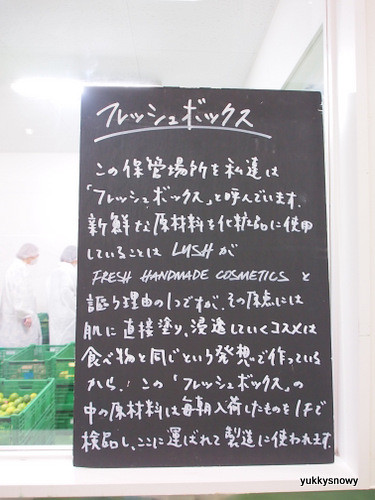 フレッシュボックス
この保管場所を私達は
「フレッシュボックス」と呼んでいます。
新鮮な原材料を化粧品に使用
していることは LUSHが
FRESH HANDMADE COSMETICS と
謳う理由の1つですが、その原点には
肌に直接塗り、浸透していくコスメは
食べ物と同じという発想で作っている
から！この「フレッシュボックス」の
中の原材料は毎朝入荷したものを1Fで
検品し、ここに運ばれて製造に使われます。
yukkysnowy